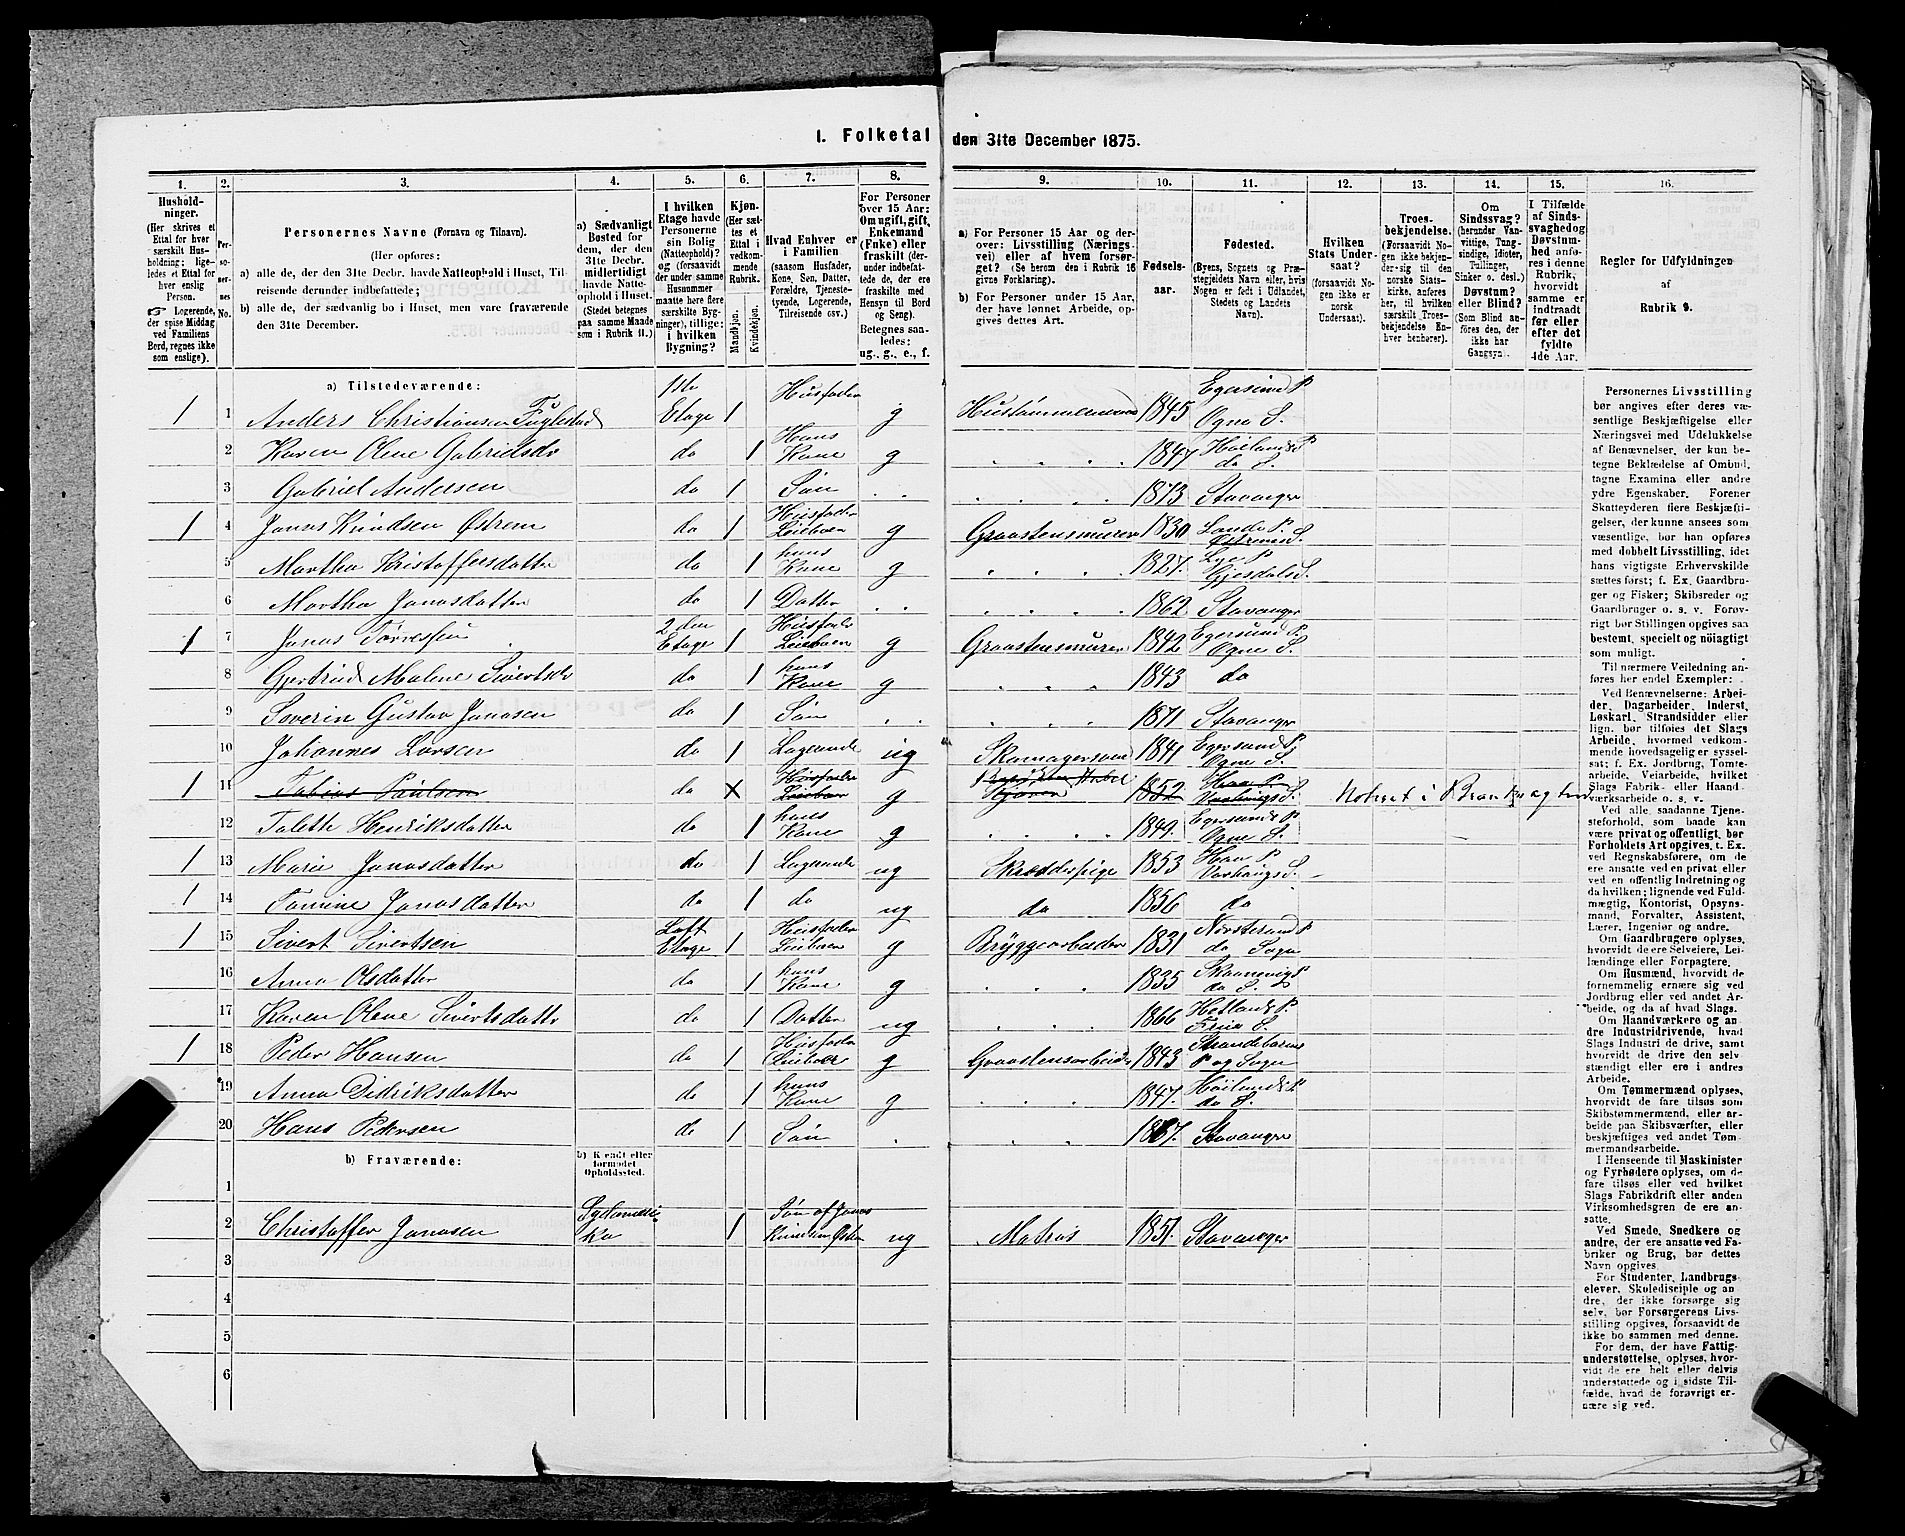 I. Folketal den 31te December 1875.
1. 2. 3. 4. 5. 6. 7. 8. 9. 10. 11. 12. 13. 14. 15. 16.
Hushold-
ninger.
(Her skrives et
Ettal for hver
særskilt Hus-
holdning; lige-
ledes et Ettal for
hver enslig
Person.
☞ Logerende,
der spise Middag
ved Familiens
Bord, regnes ikke
som enslige).
Per-
so-
ner-
nes
No.
Personernes Navne (Fornavn og Tilnavn).
(Her opføres:
a) alle de, der den 31te Decbr. havde Natteophold i Huset, Til-
reisende derunder indbefattede;
b) alle de, der sædvanlig bo i Huset, men vare fraværende
den 31te December.
a) Sædvanligt
Bosted for
dem, der den
31te Decbr.
midlertidigt
havde Natte-
ophold i Huset.
(Stedet betegnes
paa samme Maade
som i Rubrik 11.)
I hvilken
Etage havde
Personerne
sin Bolig
(Natteophold)?
og (forsaavidt
under samme
Husnummer
maatte høre flere
særskilte Byg-
ninger), tillige:
i hvilken
Bygning?
Kjøn.
(Her sæt-
tes et
Ettal i
vedkom-
mende
Rubrik.
Mandkjøn.
Kvindekjøn.
Hvad Enhver er
i Familien
(saasom Husfader,
Kone, Søn, Datter,
Forældre, Tjeneste-
tyende, Logerende,
Tilreisende osv.)
For Personer
over 15 Aar:
Om ugift, gift,
Enkemand
(Enke) eller
fraskilt (der-
under indbefat-
tede de, der ere
fraskilte med
Hensyn til Bord
og Seng).
Betegnes saa-
ledes:
ug., g., e., f.
a) For Personer 15 Aar og der-
over: Livsstilling (Nærings-
vei) eller af hvem forsør-
get? (Se herom den i Rubrik 16
givne Forklaring).
b) For Personer under 15 Aar,
der have lønnet Arbeide, op-
gives dettes Art.
Fødsels-
aar.
Fødested.
(Byens, Sognets og Præ-
stegjeldets Navn eller, hvis
Nogen er født i Udlandet,
Stedets og Landets
Navn).
Hvilken
Stats Under-
saat?
(forsaavidt No-
gen ikke er
norsk
Undersaat).
Troes-
bekjendelse.
(Forsaavidt No-
gen ikke bekjen-
der sig til den
norske Stats-
kirke, anføres
her, til hvilken
særskilt Troes-
bekjendelse En-
hver henhører).
Om
Sindssvag?
(herunder Van-
vittige, Tung-
sindige, Idioter,
Tullinger,
Sinker o. desl.)
Døvstum?
eller Blind?
(Som Blind an-
føres den, der
ikke har
Gangsyn).
I Tilfælde
af Sinds-
svaghed og
Døvstum-
hed anfø-
res i denne
Rubrik,
hvorvidt
samme er
indtraadt
før eller
efter det
fyldte
4de Aar.
Regler for Udfyldningen
af
Rubrik 9.
a) Tilstedeværende:
1 1 Anders Christiansen Fuglestad 1ste Etage 1 Husfader g Hustømmermand 1845 Egersund P. Ogne S.
2 Karen Olene Gabrielsdr do 1 Hans Kone g 1847 Høilands P. do S.
3 Gabriel Andersen do 1 Søn 1873 Stavanger
1 4 Jonas Knudsen Østrem do 1 Husfader Leieboer g Graastensmurer 1830 Lunde P. Østrem S.
5 Martha Kristoffersdatter do 1 hans Kone g 1827. Lye P. Gjesdals S.
6 Martha Jonasdatter do 1 Datter 1862 Stavanger
1 7 Jonas Torressen 2den Etage 1 Husfader Leieboer g Graastensmurer 1842 Egersund P. Ogne S.
8 Gjertrud Malene Sivertsdr do 1 hans Kone g 1843 do
9 Severin Gustav Jonasen do 1 Søn 1871 Stavanger
10 Johannes Larsen do 1 Logerende ug Skomagersvend 1841 Egersund P. Ogne S.
1 11 Tobias Paulsen do x Husfader Leieboer g 1852 Haa P. Varhougs S. Noteret i
12 Talette Henriksdatter do 1 hans Kone g 1849. Egersunds P. Ogne S.
1 13 Marie Jonasdatter do 1 Logerende ug Skrædderpige 1853 Haa P. Varhougs S.
1 14 Tomine Jonasdatter do 1 do ug do 1856 do
1 15 Sivert Sivertsen Loft Etage 1 Husfader Leieboer g Bryggearbeider 1831 Nerstrand P. do Sogn
16 Anna Olsdatter do 1 hans Kone g 1835 Skaanevigs P. do S.
17 Karen Olene Sivertsdatter do 1 Datter ug 1866 Hetlands P. Frue S.
1 18 Peder Hansen do 1 Husfader Leieboer g Graastensarbeider 1843 Strandebarms P. og Sogn
19 Anna Didriksdatter do 1 hans Kone g 1847. Høilands P. do S.
20 Hans Pedersen do 1 Søn 1867. Stavanger
b) Fraværende:
b) Kjendt eller
formodet
Opholdssted.
1
2 Christoffer Jonasen Sydamerika 1 Søn af Jonas Knudsen Østrem ug Matros 1851. Stavanger
3
4
5
6
Personernes Livsstilling
bør angives efter deres væ-
sentlige Beskjæftigelse eller
Næringsvei med Udelukkelse
af Benævnelser, der kun be-
tegne Beklædelse af Ombud,
tagne Examina eller andre
ydre Egenskaber. Forener
Skatteyderen flere Beskjæfti-
gelser, der kunne ansees som
væsentlige, bør han opføres
med dobbelt Livsstilling, idet
hans vigtigste Erhvervskilde
sættes først; f. Ex. Gaardbru-
ger og Fisker; Skibsreder og
Gaardbruger o. s. v. Forøv-
rigt bør Stillingen opgives saa
bestemt, specielt og nøiagtigt
som muligt.
Til nærmere Veiledning an-
føres her endel Exempler:
Ved Benævnelserne: Arbei-
der, Dagarbeider, Inderst,
Løskarl, Strandsidder eller
lign. bør tilføies det Slags
Arbeide, hvormed vedkom-
mende hovedsagelig er syssel-
sat; f. Ex. Jordbrug, Tomte-
arbeide, Veiarbeide, hvilket
Slags Fabrik- eller Haand-
værksarbeide o. s. v.
Ved alle saadanne Tjene-
steforhold, som baade kan
være privat og offentligt, bør
Forholdets Art opgives, t. Ex.
ved Regnskabsførere, om de
ere ansatte ved en privat eller
ved en offentlig Indretning og
da hvilken; lignende ved Fuld-
mægtig, Kontorist, Opsyns-
mand, Forvalter, Assistent,
Lærer, Ingeniør og andre.
Om Gaardbrugere oplyses,
hvorvidt de ere Selveiere, Lei-
lændinge eller Forpagtere.
Om Husmænd, hvorvidt de
fornemmelig ernære sig ved
Jordbrug eller ved andet Ar-
beide, og da af hvad Slags.
Om Haandværkere og an-
dre Industridrivende, hvad
Slags Industri de drive, samt
hvorvidt de drive den selv-
stændigt eller ere i andres
Arbeide.
Om Tømmermænd oplyses,
hvorvidt de fare tilsøs som
Skibstømmermænd, eller ar-
beide paa Skibsværfter, eller
beskjæftiges ved andet Tøm-
mermandsarbeide.
I Henseende til Maskinister
og Fyrbødere oplyses, om de
fare tilsøs eller ved hvilket
Slags Fabrikdrift eller anden
Virksomhedsgren de ere an-
satte.
Ved Smede, Snedkere og
andre, der ere ansatte ved Fa-
briker og Brug, bør dettes
Navn opgives.
For Studenter, Landbrugs-
elever, Skoledisciple og an-
dre, der ikke forsørge sig
selv, bør Forsørgerens Livs-
stilling opgives, forsaavidt de
ikke bo sammen med denne.
For dem, der have Fattig-
understøttelse, oplyses, hvor-
vidt de ere helt eller delvis
understøttede og i sidste Til-
fælde, hvad de forøvrigt er-
nære sig ved.